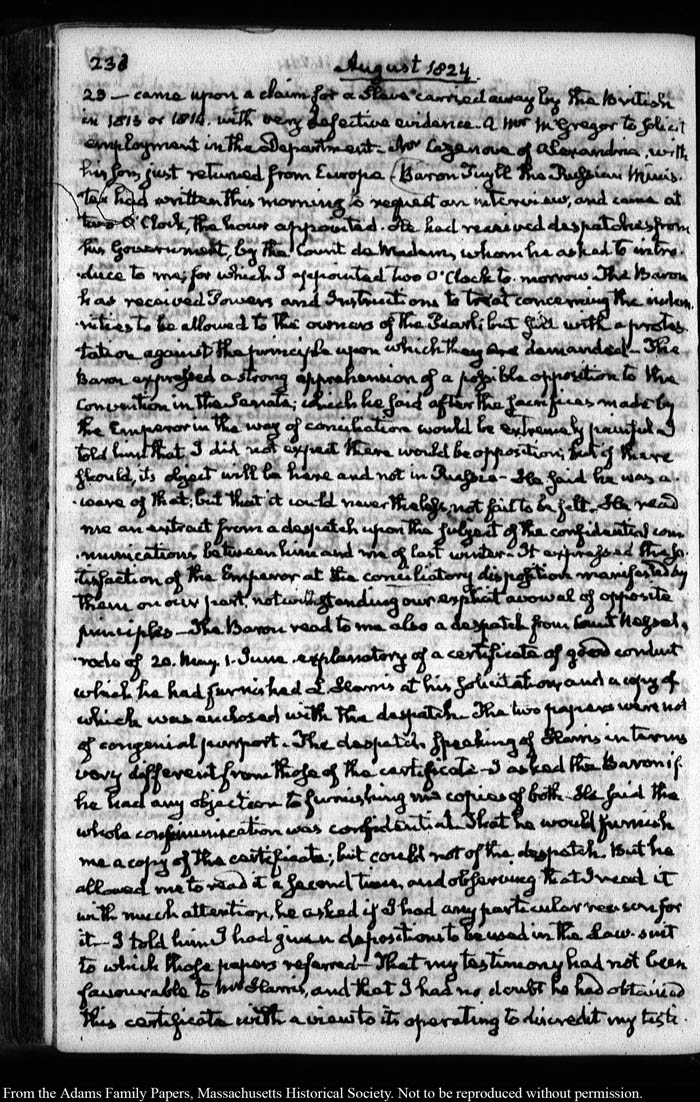 238
August 1824.
23 — came upon a claim for a Slave carried away by the British
in 1813 or 1814. with very defective evidence. A Mr McGregor to solicit
employment in the Department — Mr Cazenove of Alexandria, with
his son, just returned from Europe. Baron Tuyll the Russian Minis-
ter had written this morning to request an interview, and came at
two O'Clock, the hour appointed. He had received despatches from
his Government, by the Count de Medem, whom he asked to intro-
duce to me; for which I appointed two O'Clock to-morrow. The Baron
has received Powers and Instructions to treat concerning the indem-
nities to be allowed to the owners of the Pearl; but still with a protes-
tation against the principle upon which they are demanded — The
Baron expressed a strong apprehension of a possible opposition to the
Convention in the Senate; which he said after the sacrifices made by
the Emperor in the way of conciliation would be extremely painful. I
told him that I did not expect there would be opposition; but if there
should, its object will be here and not in Russia — He said he was a-
ware of that; but that it could nevertheless, not fail to be felt. He read
me an extract from a despatch upon the subject of the confidential com-
munications between him and me of last winter — It expressed the sa-
tisfaction of the Emperor at the conciliatory disposition manifested by
them on our part, notwithstanding our explicit avowal of opposite
principles — The Baron read to me also a despatch from Count Nessel-
rode of 20. May 1. June. explanatory of a certificate of good conduct
which he had furnished L Harris at his solicitation, and a copy of
which was enclosed with the despatch. The two papers were not
of congenial purport. The despatch speaking of Harris in terms
very different from those of the certificate — I asked the Baron if
he had any objection to furnishing me copies of both. He said the
whole communication was confidential. That he would furnish
me a copy of the certificate; but could not of the despatch. But he
allowed me to read it a second time, and observing that I read it
with much attention, he asked if I had any particular reason for
it — I told him I had given depositions to be used in the Law-suit
to which those papers referred — That my testimony had not been
favourable to Mr Harris, and that I had no doubt he had obtained
this certificate with a view to its operating to discredit my testi-
From the Adams Family Papers, Massachusetts Historical Society. Not to be reproduced without permission.